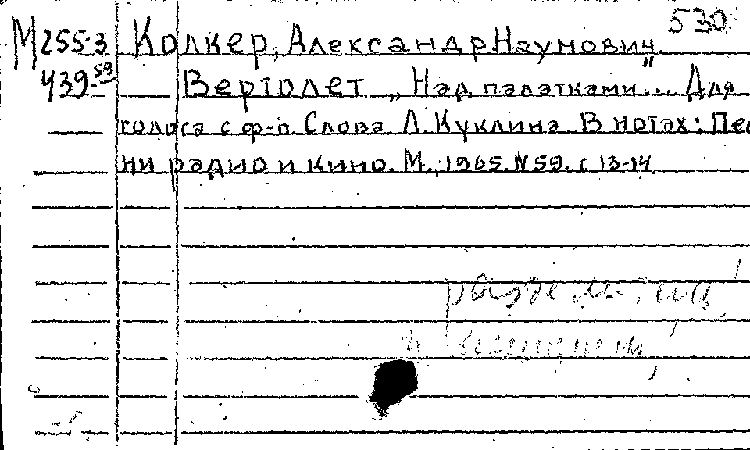 530
М255-3 Колкер, Александр Наумович.
439-59 Вертолет „Над палатками"... Для
голоса с ф-п. Слова Л. Куклина. В нотах: Пес
ни радио и кино. М., 1965. N59. с 13-14